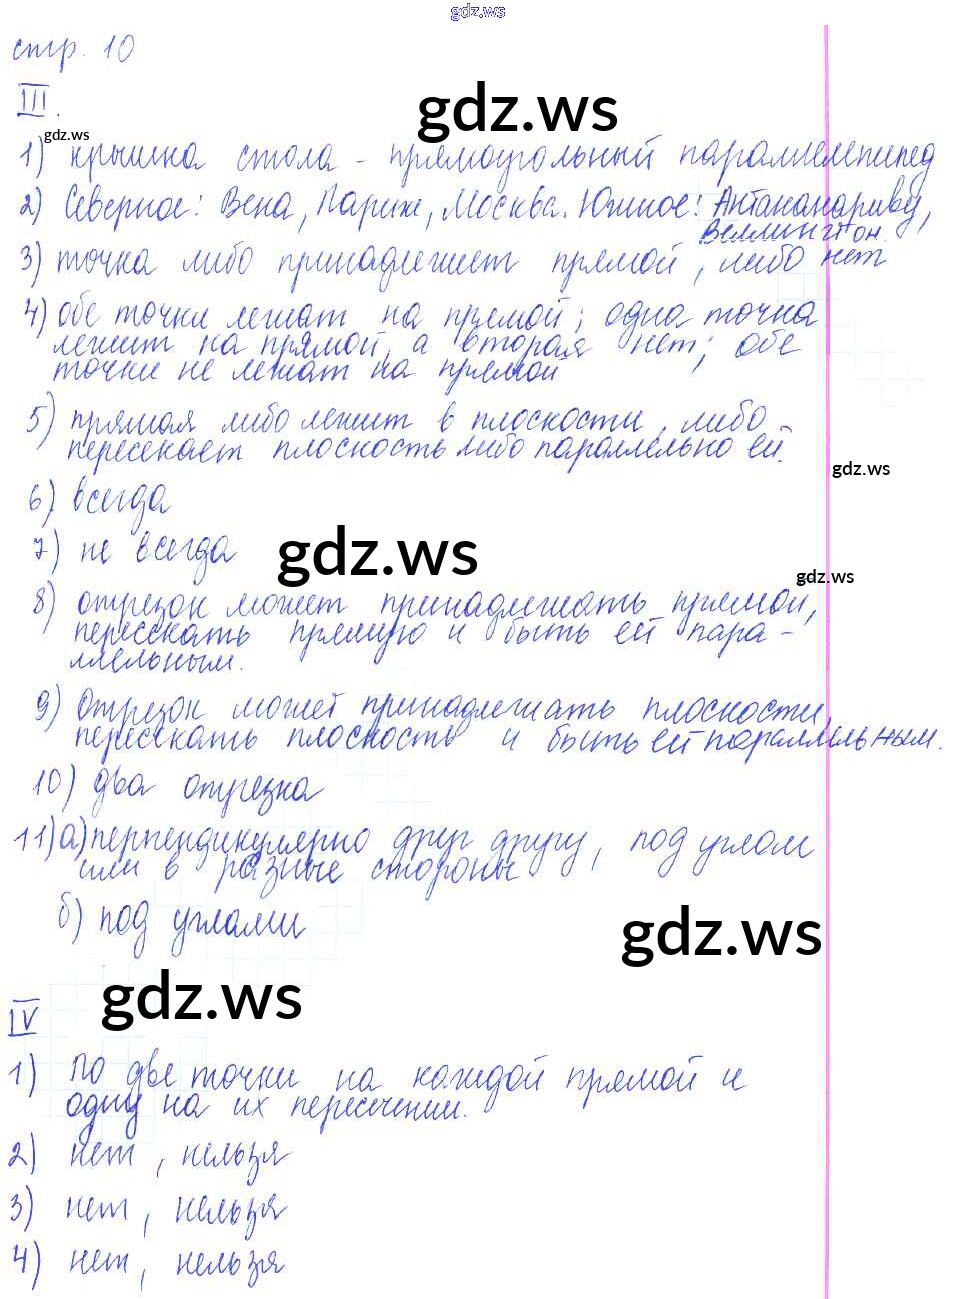 gdz.ws
стр. 10
III.
gdz.ws
gdz.ws
1) крышка стола - прямоугольный параллелепипед
2) Северное: Вена, Париж, Москва. Южное: Антананариву,
Веллингтон.
3) точка либо принадлежит прямой, либо нет
4) обе точки лежат на прямой; одна точка
лежит на прямой, а вторая нет; обе
точки не лежат на прямой
5) прямая либо лежит в плоскости, либо
пересекает плоскость либо параллельно ей.
gdz.ws
6) всегда
7) не всегда
gdz.ws
gdz.ws
8) отрезок может принадлежать прямой,
пересекать прямую и быть ей пара-
ллельным.
9) Отрезок может принадлежать плоскости,
пересекать плоскость и быть ей параллельным.
10) два отрезка
11) а) перпендикулярно друг другу, под углом
или в разные стороны
б) под углами
gdz.ws
gdz.ws
IV
1) По две точки на каждой прямой и
одну на их пересечении.
2) нет, нельзя
3) нет, нельзя
4) нет, нельзя